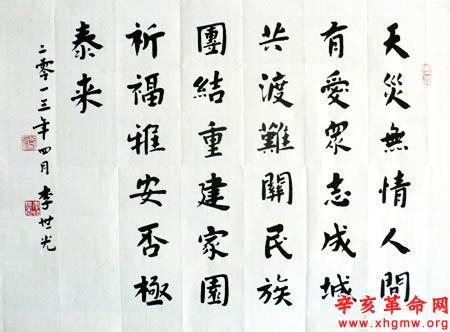 天災無情人間
有愛眾志成城
共渡難關民族
團結重建家園
祈福雅安否極
泰来
二零一三年四月 李世光
辛亥革命网
www.xhgmw.org